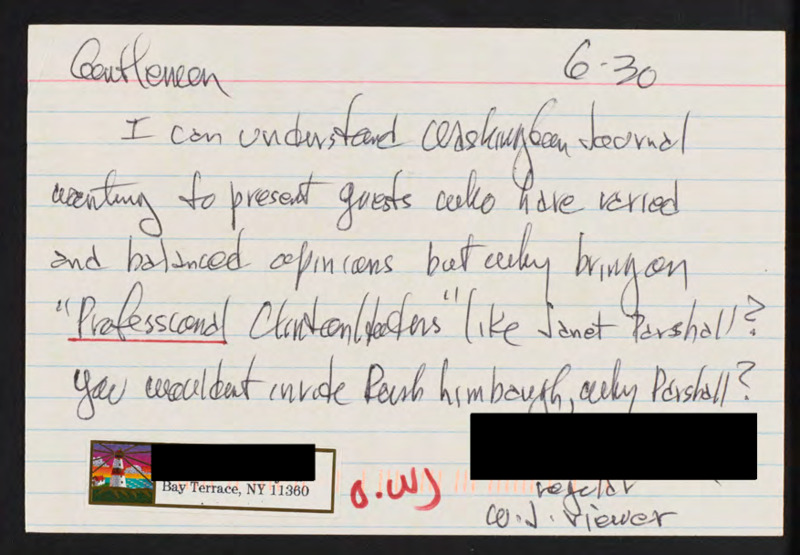 Gentlemen
6-30
I can understand Washington Journal
wanting to present guests who have varied
and balanced opinions but why bring on
"Professional Clinton haters" like Janet Parshall?
You wouldent invite Rush Limbaugh, why Parshall?
Bay Terrace, NY 11360
regular
W.J. viewer